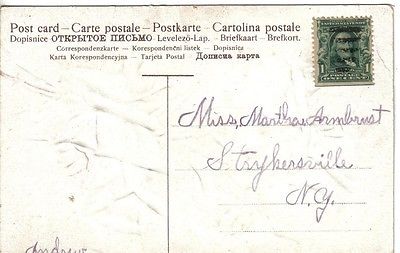 Post card — Carte postale — Postkarte — Cartolina postale
Dopisnice ОТКРЫТОЕ ПИСЬМО Levelező-Lap. Briefkaart — Brefkort.
Correspondenzkarte — Korespondenční lístek — Dopisnica
Karta Korespondencyjna — Tarjeta Postal — Дописна карта
Miss, Martha, Armbrust
Strykersville
N.Y.
Andrew